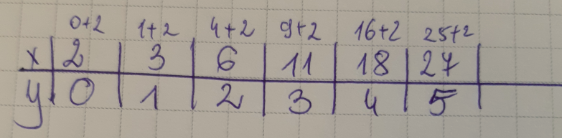 0+2 1+2 4+2 9+2 16+2 25+2
x 2 3 6 11 18 27
y 0 1 2 3 4 5